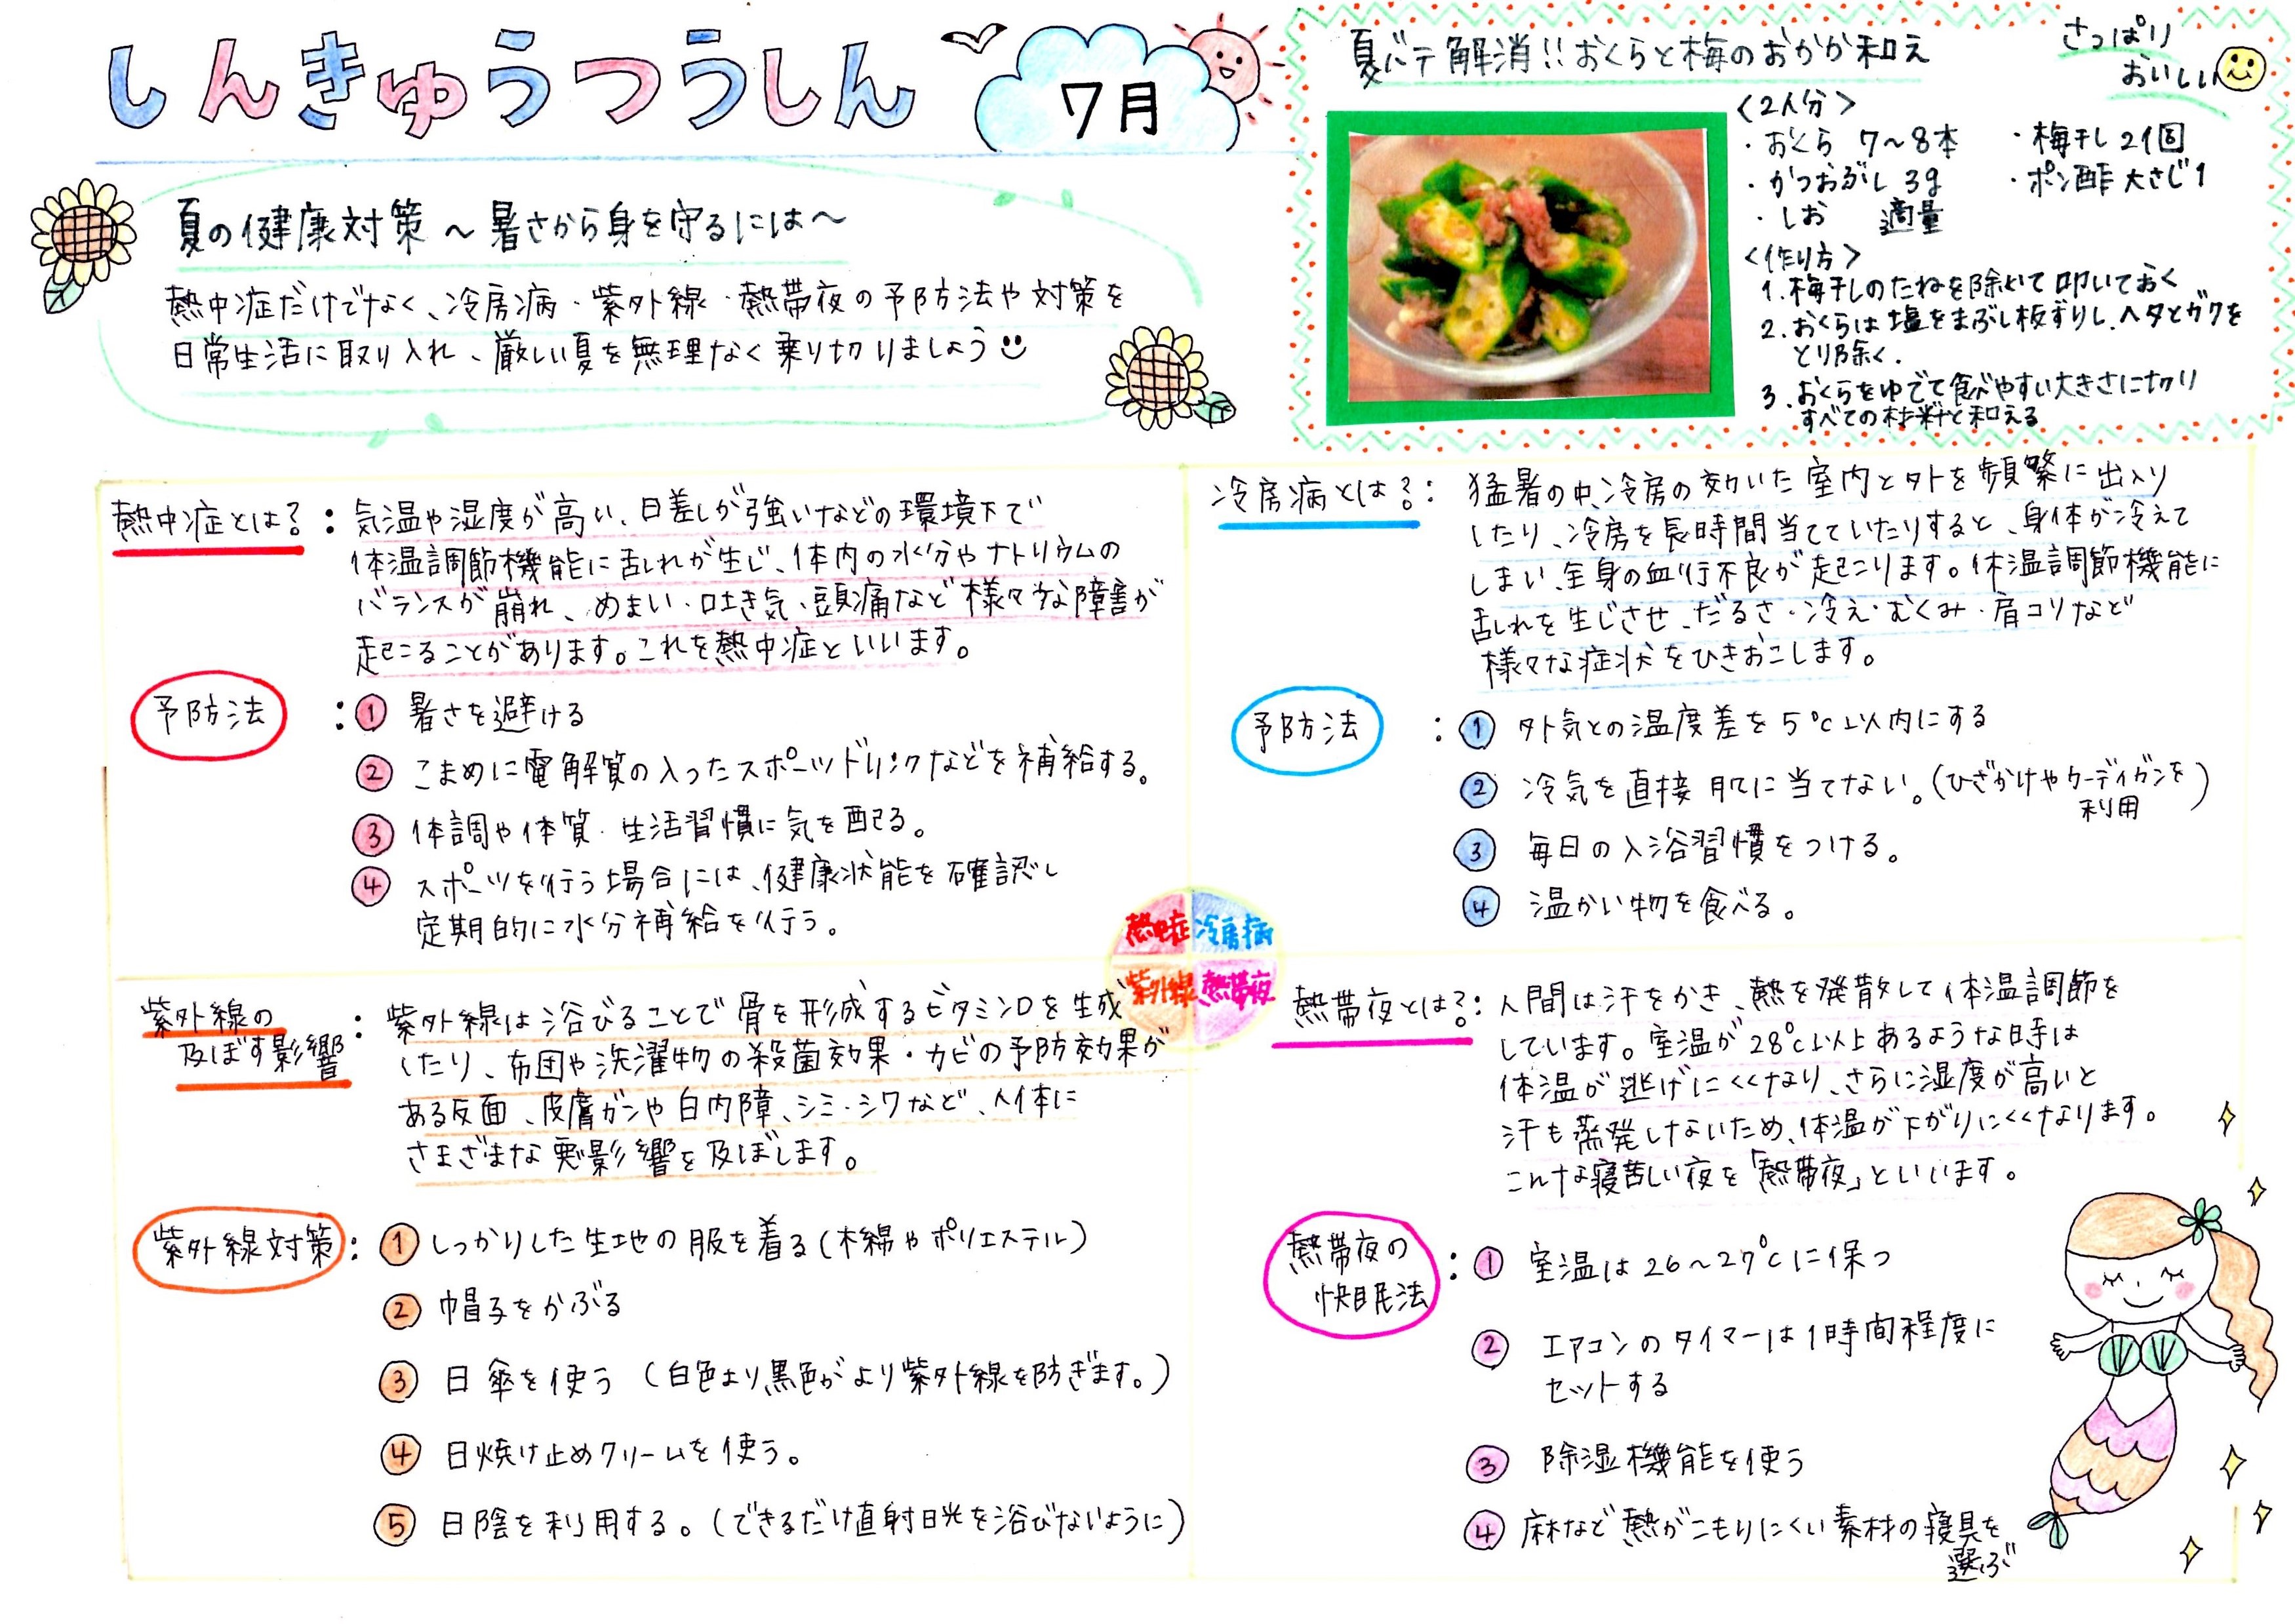 しんきゅうつうしん
7月
夏の健康対策 ～暑さから身を守るには～
熱中症だけでなく、冷房病・紫外線・熱帯夜の予防法や対策を
日常生活に取り入れ、厳しい夏を無理なく乗り切りましょう
夏バテ解消!!おくらと梅のおかか和え
さっぱり
おいしい
<2人分>
・おくら 7～8本
・梅干し 2個
・かつおぶし 3g
・ポン酢 大さじ1
・しお 適量
<作り方>
1.梅干しのたねを除いて叩いておく
2.おくらは塩をまぶし板ずりし、ヘタとガクを
とり除く.
3.おくらをゆでて食べやすい大きさに切り
すべての材料と和える
熱中症とは?:気温や湿度が高い、日差しが強いなどの環境下で
体温調節機能に乱れが生じ、体内の水分やナトリウムの
バランスが崩れ、めまい・吐き気・頭痛など様々な障害が
起こることがあります。これを熱中症といいます。
予防法:① 暑さを避ける
② こまめに電解質の入ったスポーツドリンクなどを補給する。
③ 体調や体質・生活習慣に気を配る。
④ スポーツを行う場合には、健康状態を確認し
定期的に水分補給を行う。
冷房病とは?:猛暑の中、冷房の効いた室内と外を頻繁に出入り
したり、冷房を長時間当てていたりすると、身体が冷えて
しまい、全身の血行不良が起こります。体温調節機能に
乱れを生じさせ、だるさ・冷え・むくみ・肩コリなど
様々な症状をひきおこします。
予防法:① 外気との温度差を5℃以内にする
② 冷気を直接肌に当てない。(ひざかけやカーディガンを
利用)
③ 毎日の入浴習慣をつける。
④ 温かい物を食べる。
熱中症 冷房病
紫外線 熱帯夜
紫外線の
及ぼす影響
:紫外線は浴びることで骨を形成するビタミンDを生成
したり、布団や洗濯物の殺菌効果・カビの予防効果が
ある反面、皮膚ガンや白内障、シミ・シワなど、人体に
さまざまな悪影響を及ぼします。
紫外線対策:① しっかりした生地の服を着る(木綿やポリエステル)
② 帽子をかぶる
③ 日傘を使う (白色より黒色がより紫外線を防ぎます。)
④ 日焼け止めクリームを使う。
⑤ 日陰を利用する。(できるだけ直射日光を浴びないように)
熱帯夜とは?:人間は汗をかき、熱を発散して体温調節を
しています。室温が28℃以上あるような時は
体温が逃げにくくなり、さらに湿度が高いと
汗も蒸発しないため、体温が下がりにくくなります。
こんな寝苦しい夜を「熱帯夜」といいます。
熱帯夜の
快眠法
:① 室温は26～27℃に保つ
② エアコンのタイマーは1時間程度に
セットする
③ 除湿機能を使う
④ 麻など熱がこもりにくい素材の寝具を
選ぶ